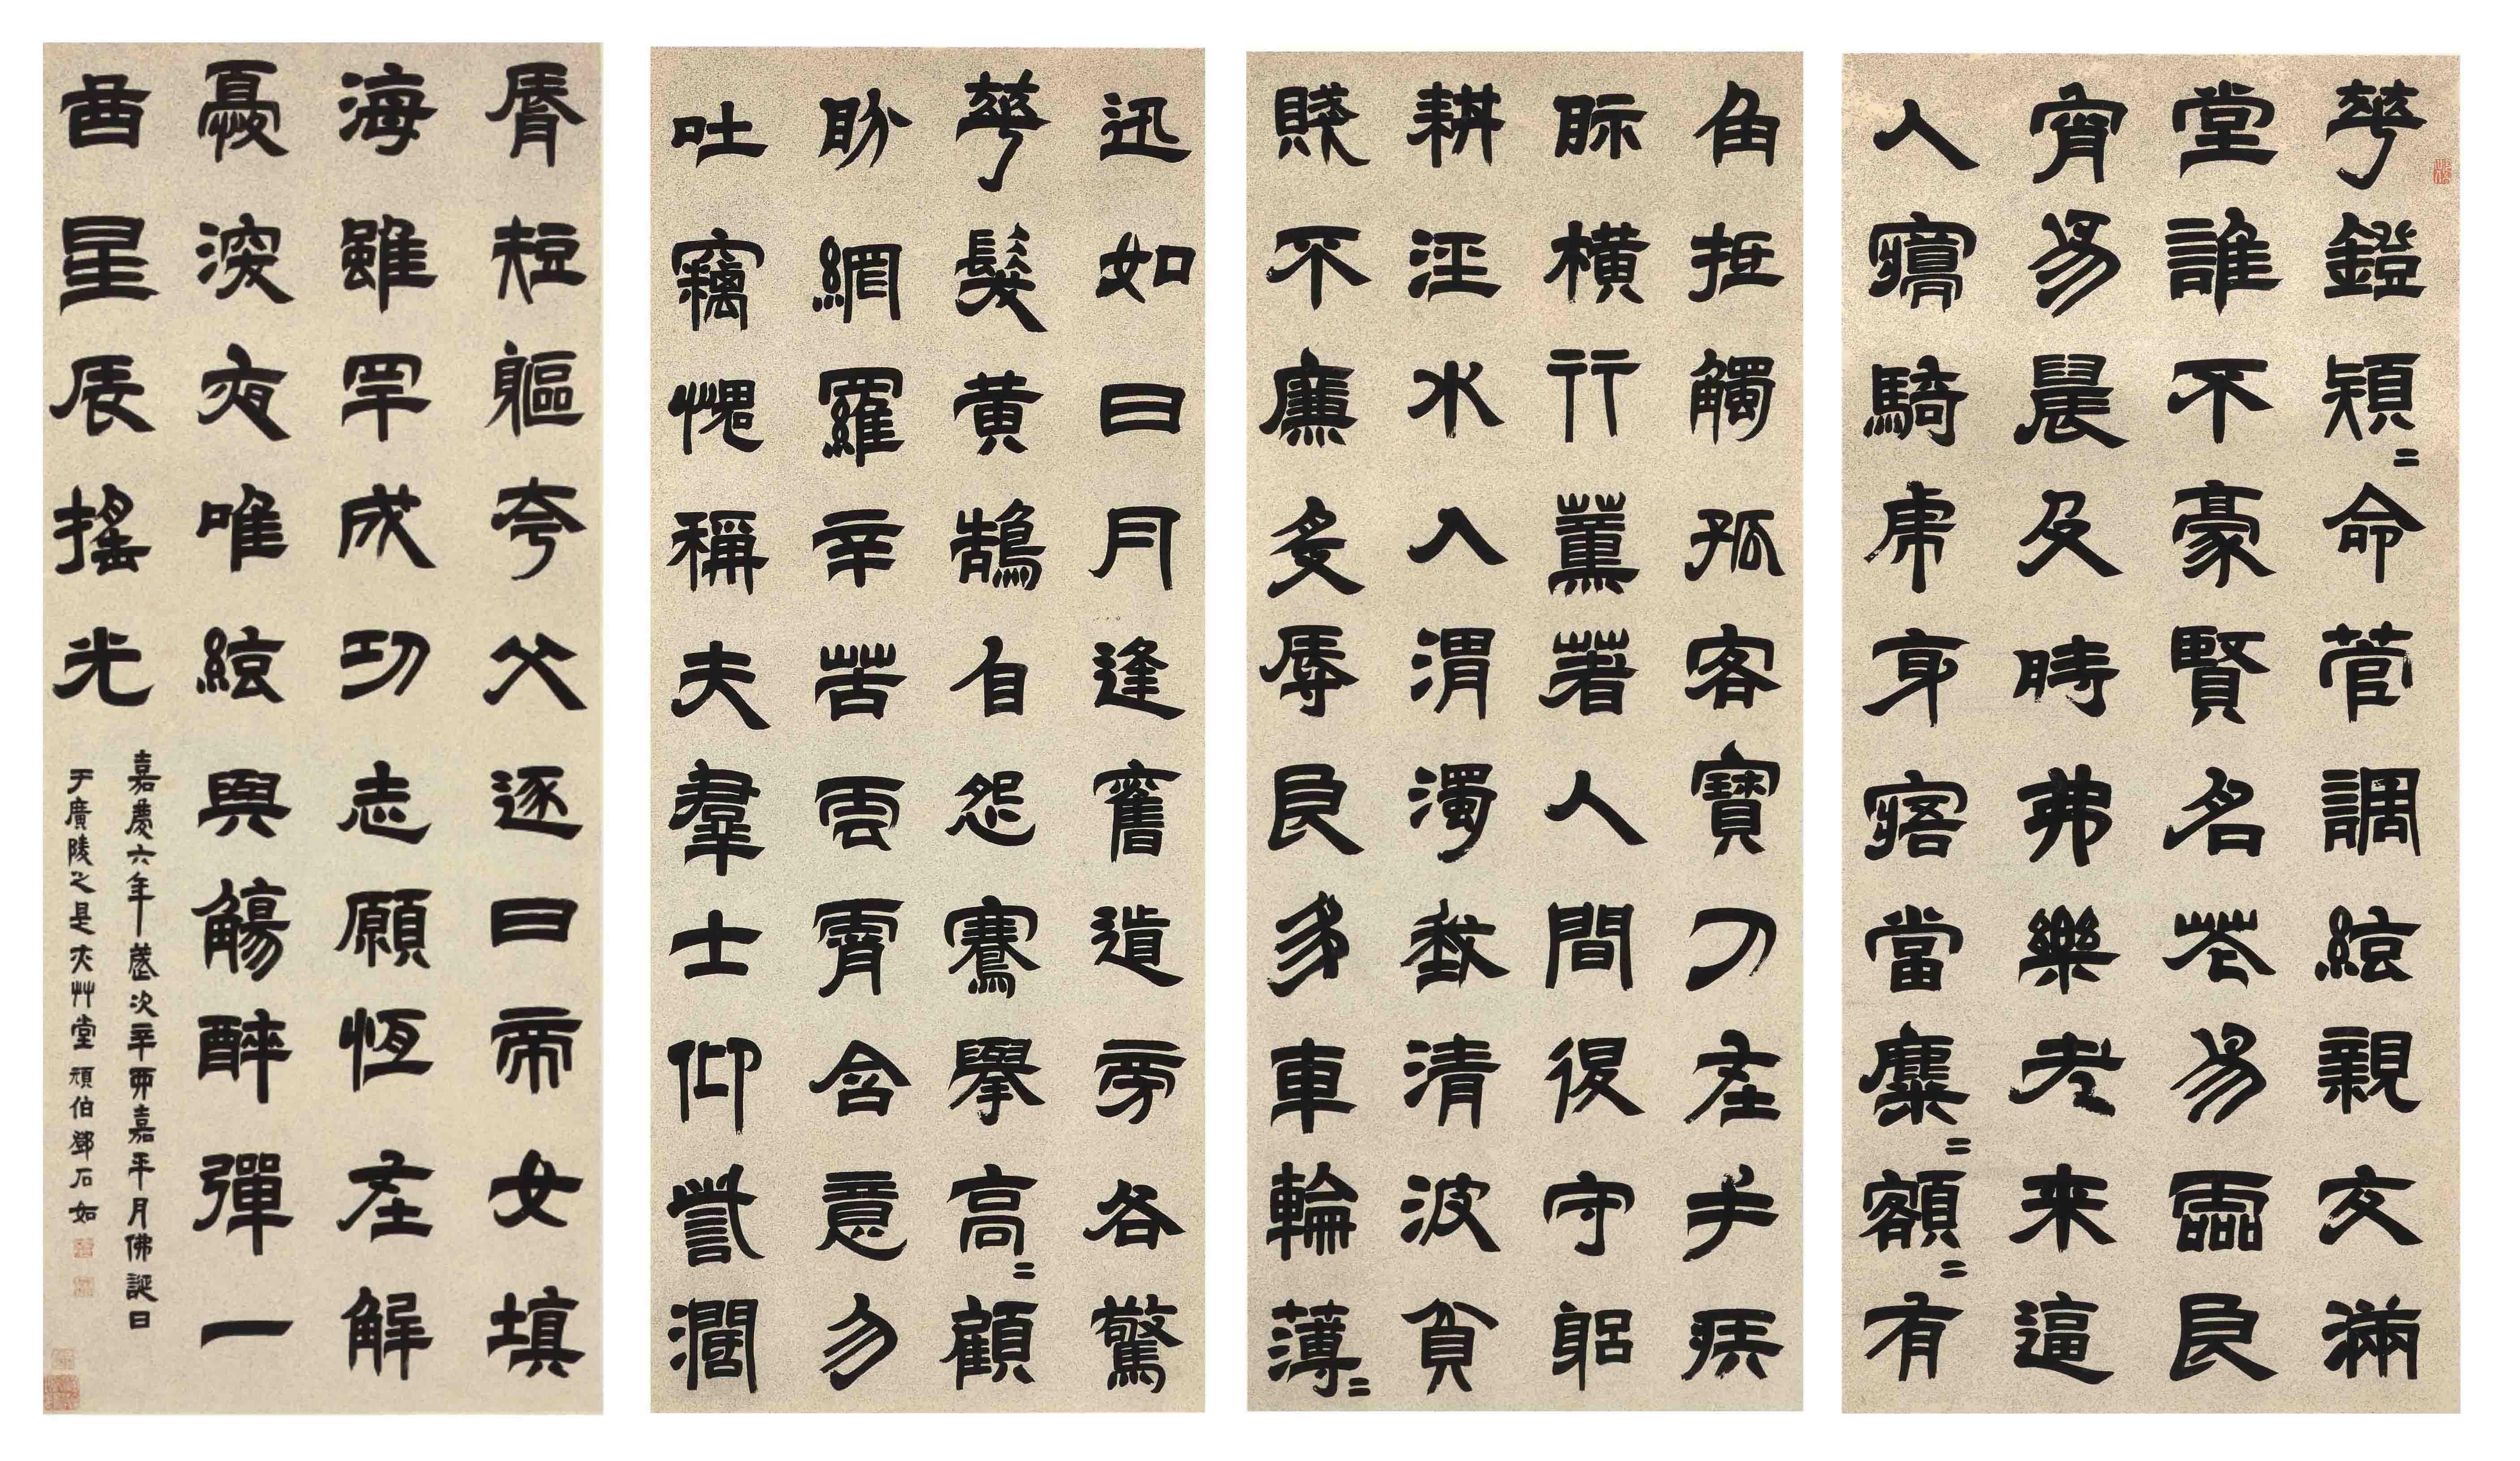 華鐙熲=命管調絃親友滿
堂誰不豪賢名花易霝良
宵易晨及時弗樂老来逼
人寱騎虎身寤當麋=額=有
角抵觸孤客寶刀在手疾
眎橫行薰著人間復守躬
耕涇水入渭濁孰清波貧
賤不廉受辱良多車輪薄=
迅如日月逢舊道旁各驚
華髮黃鵠自怨騫舉高=顧
盼網羅辛苦雲霄含意勿
吐竊愧稱夫羣士仰譽濶
脣短軀夸父逐日帝女填
海雖罕成功志願恆在解
憂湥夜唯絃與觴醉彈一
曲星辰搖光
嘉慶六年歲次辛酉嘉平月佛誕日
于廣陵之是夾艸堂頑伯鄧石如